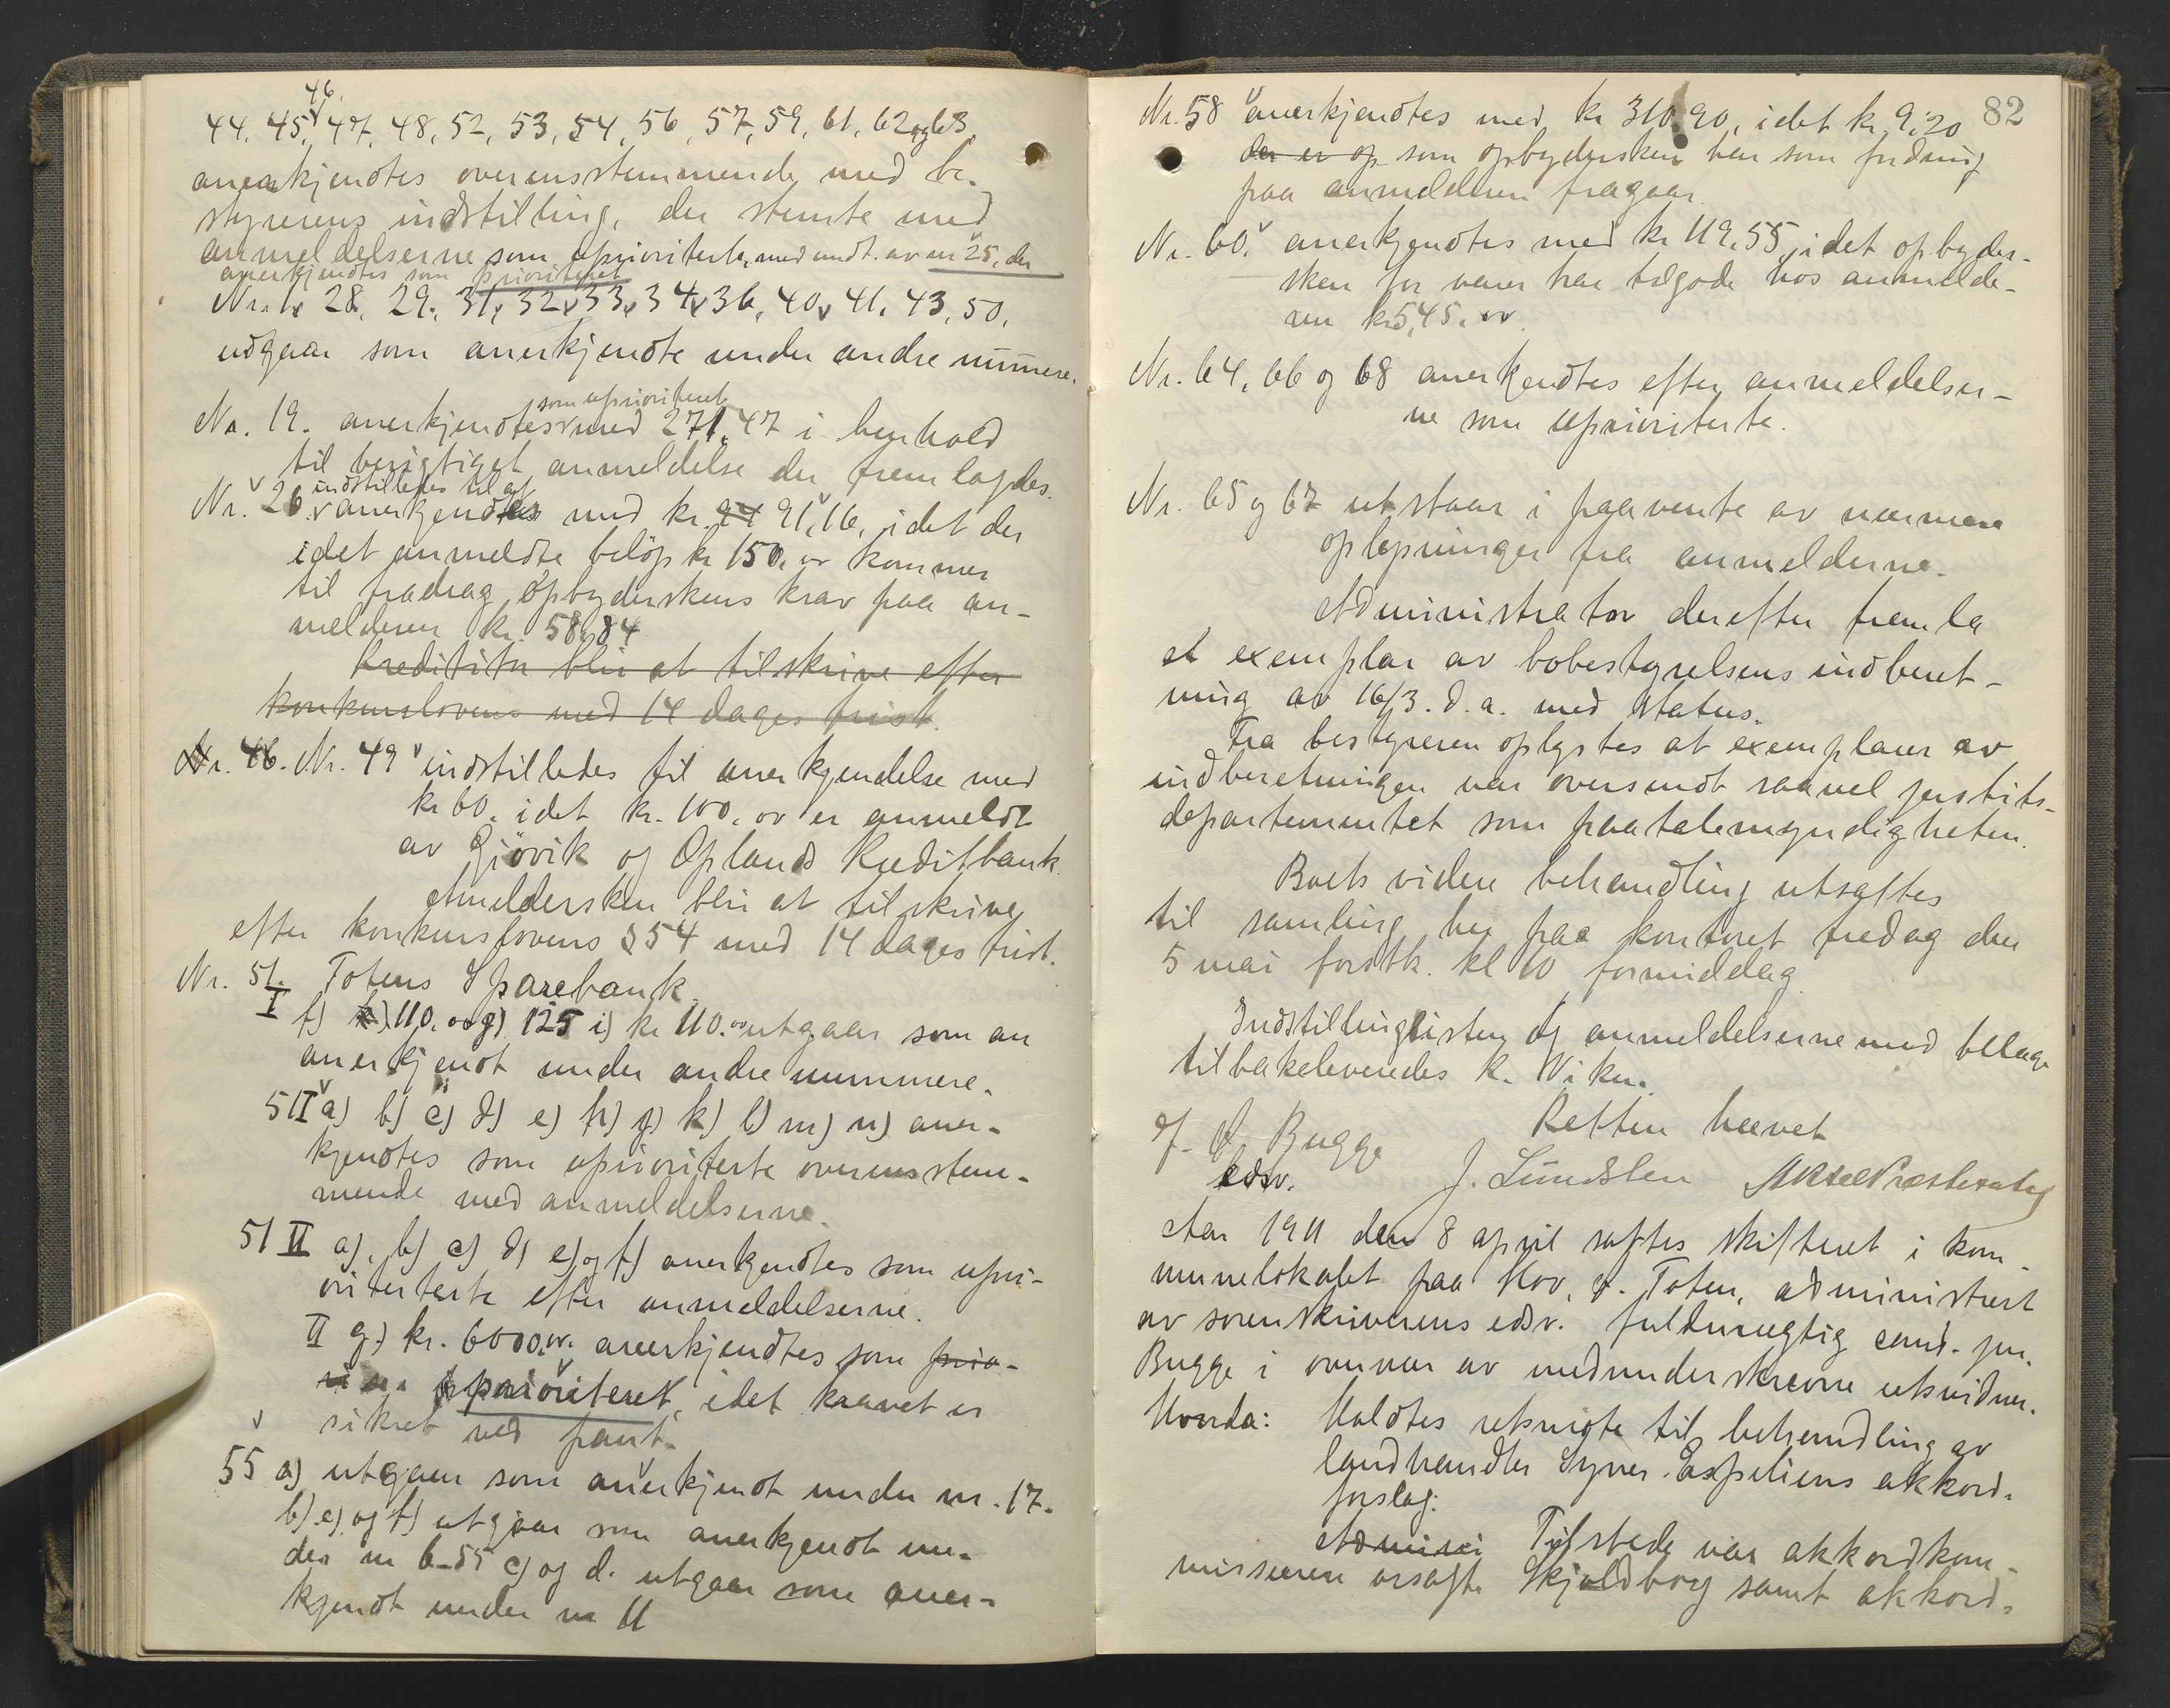 46.
44, 45, 47, 48, 52, 53, 54, 56, 57, 59, 61, 62 og 63
anerkjendtes overensstemmende med be-
styrerens indstilling, der stemte med
anmeldelserne som upriviterte, med undt. av nr 25, der
anerkjendtes som prioriteret
Nr. 1, 28, 29, 31, 32, 33, 34, 36, 40, 41, 43, 50,
udgaar som anerkjendte under andre numere.
som uprioriteret
Nr. 19. anerkjendtes med 271,47 i henhold
til berigtiget anmeldelse der fremlagdes.
indstilledes til at
Nr. 26. anerkjendtes med kr. 91,16, idet der
i det anmeldte beløp kr 150, or kommer
til fradrag opbyderskens krav paa an-
melderen kr. 58,84
Kreditiita blir at tilskrive efter
konkurslovens med 14 dages frist.
Nr. 46. Nr. 49 indstilledes til anerkjendelse med
kr 60. idet kr. 100, or er anmeldt
av Gjøvik og Oplands Kreditbank.
Anmeldersken blir at tilskrive
efter konkurslovens § 54 med 14 dages frist.
Nr. 51. Totens Sparebank.
I f) 110. oo g) 125 i) kr 110. oo utgaar som an
anerkjendt under andre nummere.
51 I a) b) c) d) e) h) j) k) l) m) n) aner-
kjendtes som uprioriterte overensstem-
mende med anmeldelserne.
51 II a), b) c) d) e) og f) anerkjendtes som upri-
oriterterte efter anmeldelserne.
II g.) kr. 6000, or. anerkjendtes som prio-
prioriteret, idet kravet er
sikret ved pant.
55 a) utgaar som anerkjendt under nr. 17.
b) e) og f) utgaar som anerkjendt un-
der nr 6 - 55 c) og d. utgaar som aner-
kjendt under nr 11
82
Nr. 58 anerkjendtes med kr 310.90, idet kr 9.20
der er op som opbydersken har som fordring
paa anmelderen fragaar.
Nr. 60. anerkjendtes med kr 119.55, idet opbyder-
sken for varer har tilgode hos anmelde-
ren kr 545. or
Nr. 64, 66 og 68 anerkjendtes efter anmeldelser-
ne som uprioriterte.
Nr. 65 og 67 utstaar i paavente av nærmere
oplysninger fra anmelderne.
Administrator derefter fremla
et exemplar av bobestyrelsens indberet-
ning av 16/3. d.a. med status.
Fra bestyreren oplystes at exemplarer av
indberetningen var oversendt saavel justits-
departementet som paatalemyndigheten.
Boets videre behandling utsattes
til samling her paa kontoret fredag den
5 mai førstk. kl 10 formiddag.
Indstillingslisten og anmeldelserne med bilage
tilbakeleveredes k. Viken.
Retten hævet
Bugge
edsv.
J. Lundsten Aksel Præsterstuen
Aar 1911 den 8 april sattes skifteret i kom-
munelokalet paa Hov, v. Toten, administrert
av sorenskriverens edsv. fuldmægtig cand. jur.
Bugge i overvær av medunderskrevne retsvidner.
Hvorda: Holdtes retsmøte til behandling av
landhandler Syver Espeliens akkord-
forslag.
Admini Tilstede var akkordkom-
missæren orsagf. Skjoldborg samt akkord-